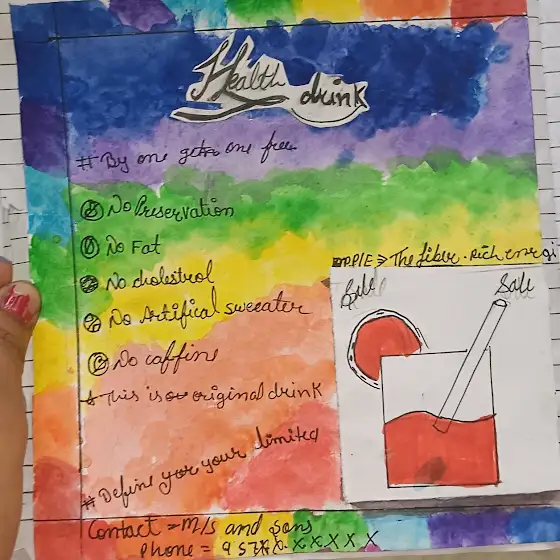 Health drink
# By one get one free
No Preservation
No Fat
No cholestrol
No Artifical sweeater
No caffine
APPLE => The fiber-Rich energi
Sale
This is or original drink
# Define your your limited
Contact = M/s and sons
Phone = 957